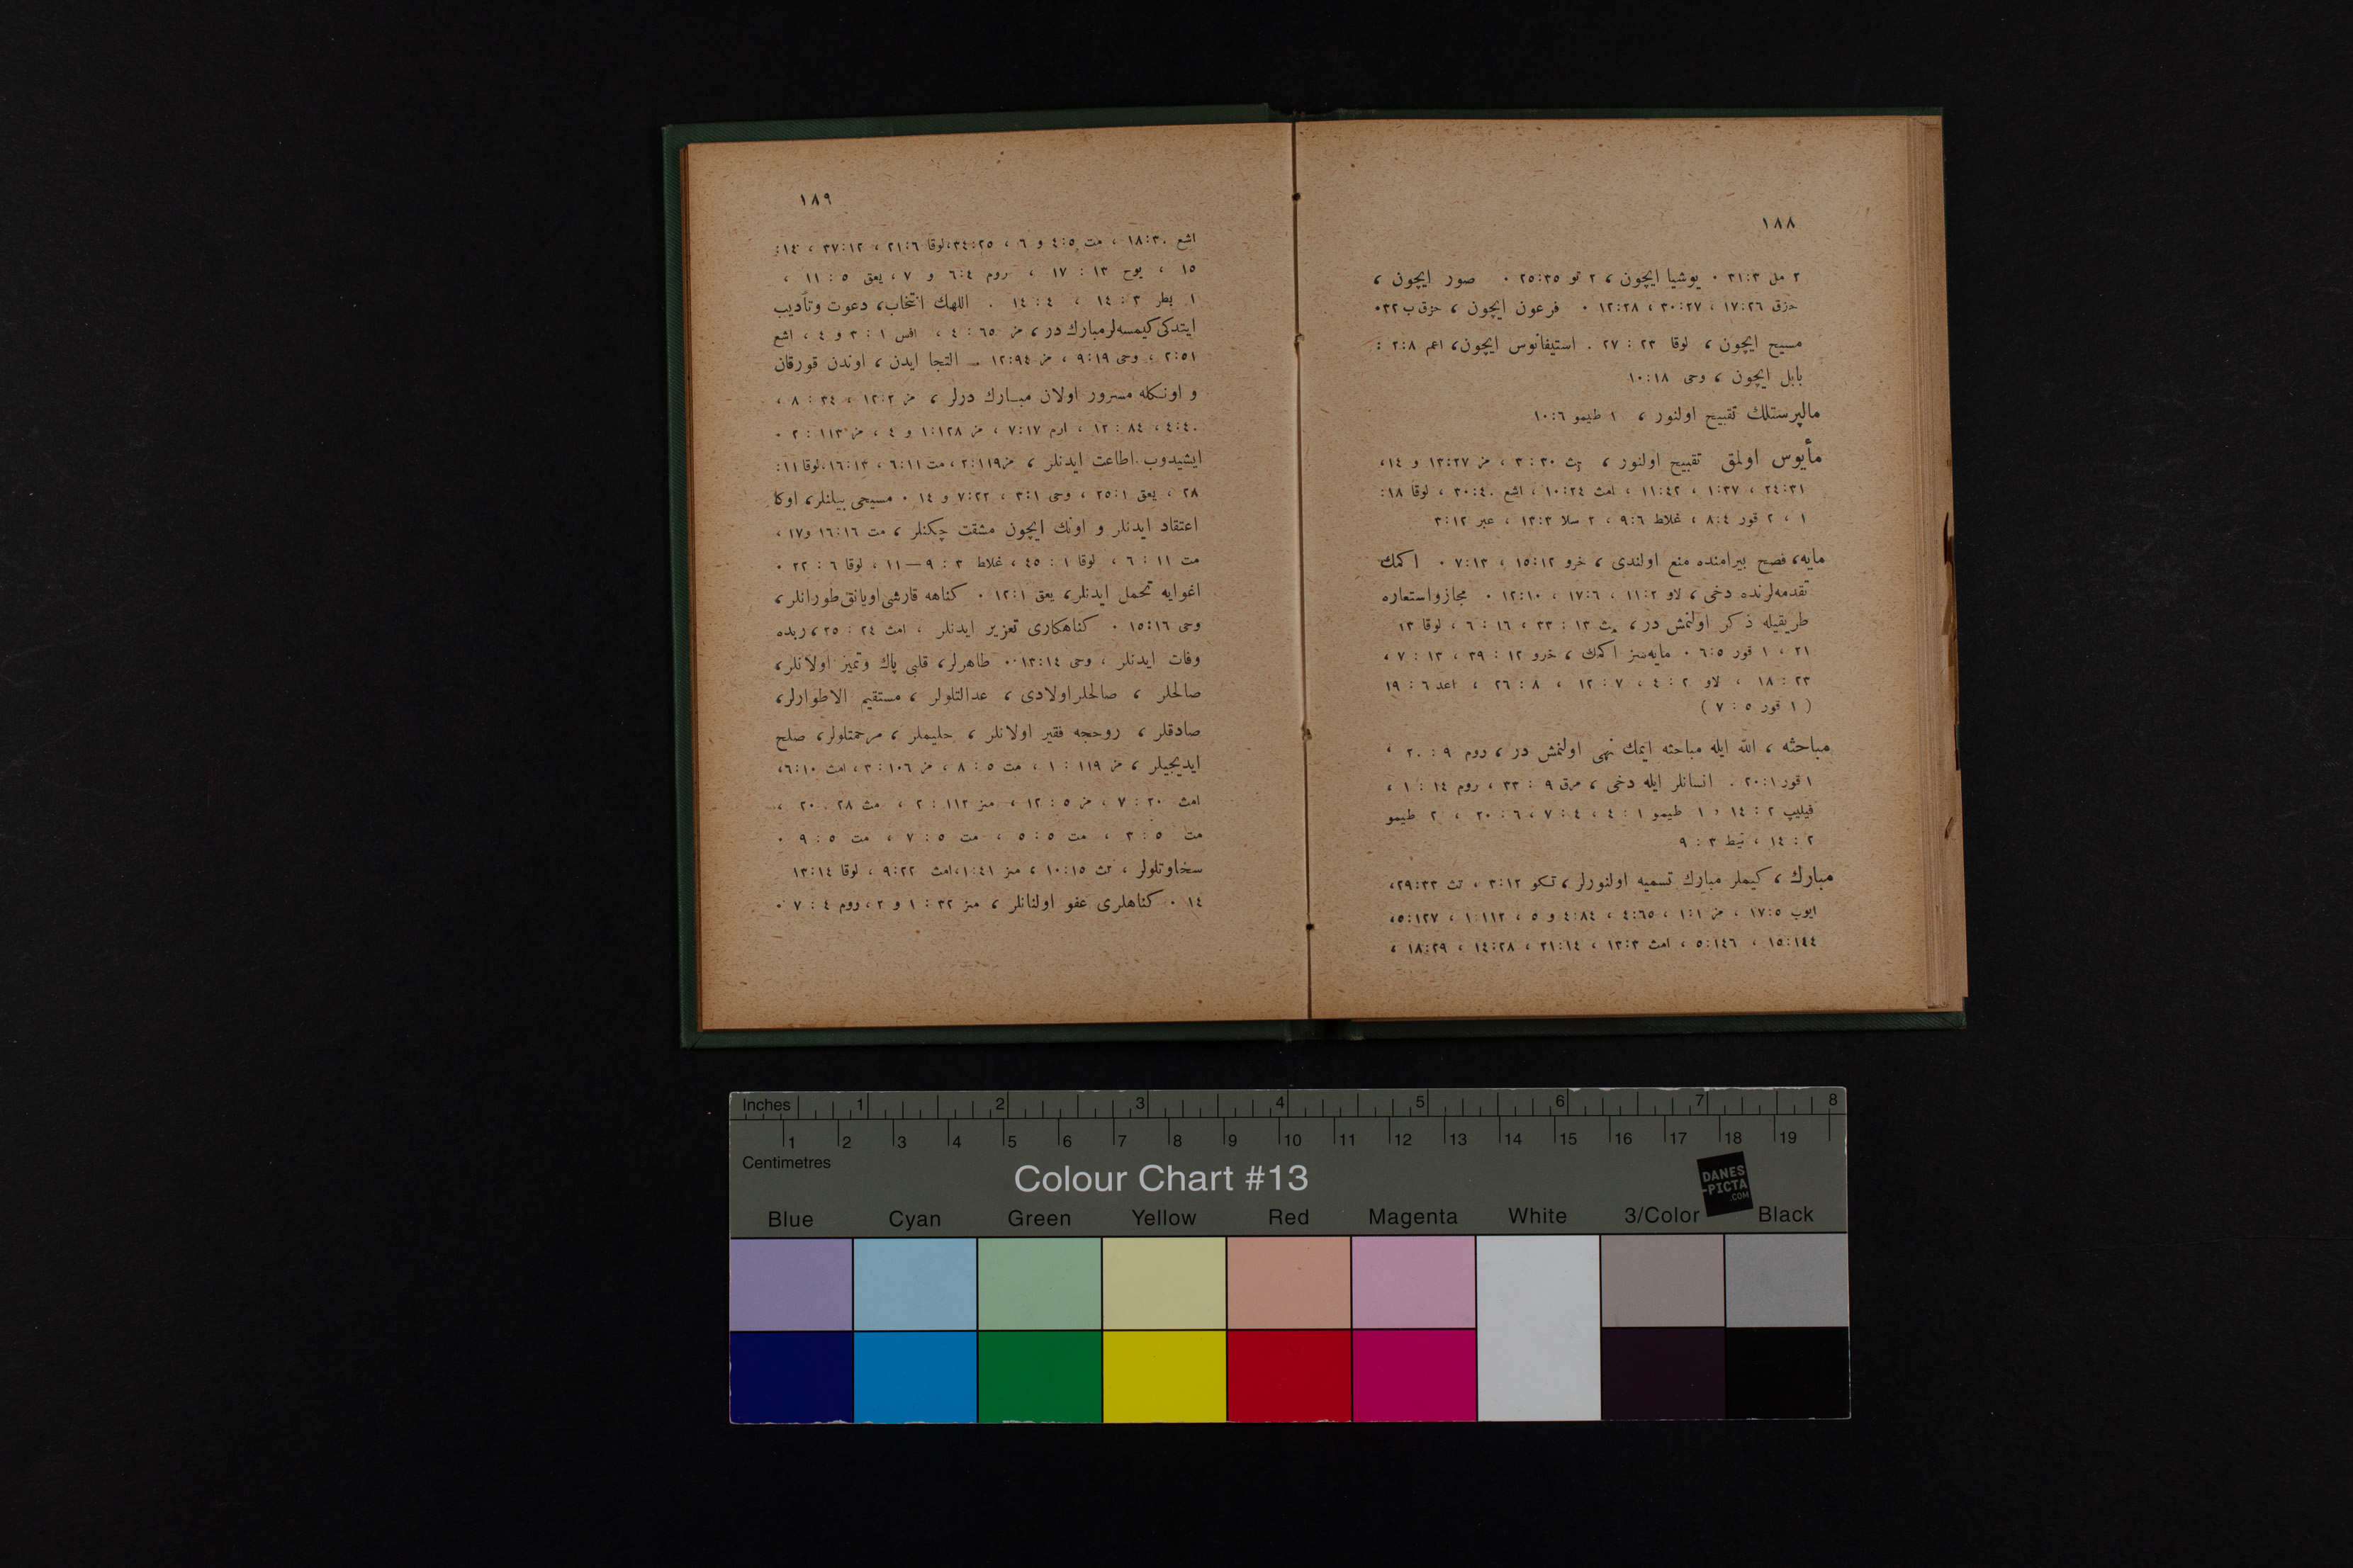 ١٨٨
٢ مل ٣١:٣ ٠ يوشيا ايچون ، ٢ تو ٢٥:٣٥ ٠ صور ايچون ،
حزق ١٧:٢٦ ، ٣٠:٢٧ ، ١٢:٢٨ ٠ فرعون ايچون ، حزق ب ٣٢ ٠
مسيح ايچون ، لوقا ٢٣ : ٢٧ . استيفانوس ايچون، اعم ٢:٨ :
بابل ايچون ، وحى ١٠:١٨
مالپرستلك تقبيح اولنور ، ١ طيمو ١٠:٦
مأيوس اولمق تقبيح اولنور ، تث ٣٠ : ٣ ، مز ١٣:٢٧ و ١٤،
٢٤:٣١ ، ١:٣٧ ، ١١:٤٢ ، امث ١٠:٢٤ ، اشع ٣٠:٤٠ ، لوقا ١٨:
١ ، ٢ قور ٨:٤ ، غلاط ٩:٦ ، ٢ سلا ١٣:٣ ، عبر ٣:١٢
مايه، فصح بيرامنده منع اولندى ، خرو ١٥:١٢ ، ٧:١٣ ٠ اكمك
تقدمه‌لرنده دخى ، لاو ١١:٢ ، ١٧:٦ ، ١٢:١٠ ٠ مجاز واستعاره
طريقيله ذكر اولنمش در ، مت ١٣ : ٣٣ ، ١٦ : ٦ ، لوقا ١٣
٢١ ، ١ قور ٦:٥ ٠ مايه‌سز اكمك ، خرو ١٢ : ٣٩ ، ١٣ : ٧ ،
٢٣ : ١٨ ، لاو ٢ : ٤ ، ٧ : ١٢ ، ٨ : ٢٦ ، اعد ٦ : ١٩
( ١ قور ٥ : ٧ )
مباحثه ، الله ايله مباحثه ايمك نهى اولنمش در ، روم ٩ : ٢٠ ،
١ قور ٢٠:١ . انسانلر ايله دخى ، مرق ٩ : ٣٣ ، روم ١٤ : ١ ،
فيليپ ٢ : ١٤ ، ١ طيمو ١ : ٤ ، ٤ : ٧ ، ٦ : ٢٠ ، ٢ طيمو
٢ : ١٤ ، تيط ٣ : ٩
مبارك ، كيملر مبارك تسميه اولنورلر ، تكو ٣:١٢ ، تث ٢٩:٣٣،
ايوب ١٧:٥ ، مز ١:١ ، ٤:٦٥ ، ٤:٨٤ و ٥ ، ١:١١٢ ، ٥:١٢٧،
١٥:١٤٤ ، ٥:١٤٦ ، امث ١٣:٣ ، ٢١:١٤ ، ١٤:٢٨ ، ١٨:٢٩ ،
١٨٩
اشع ١٨:٣٠ ، مت ٤:٥ و ٦ ، ٣٤:٢٥،لوقا ٢١:٦ ، ٣٧:١٢ ، ١٤:
١٥ ، يوح ١٣ : ١٧ ، روم ٦:٤ و ٧ ، يعق ٥ : ١١ ،
١ بطر ٣ : ١٤ ، ٤ : ١٤ . اللهك انتخاب، دعوت وتأديب
ايتدكى كيمسه‌لر مبارك در ، مز ٦٥ : ٤ ، افس ١ : ٣ و ٤ ، اشع
٢:٥١ ، وحى ٩:١٩ ، مز ١٢:٩٤ . التجا ايدن ، اوندن قورقان
و اونكله مسرور اولان مبارك درلر ، مز ١٢:٢ ، ٣٤ : ٨ ،
٤:٤٠ ، ٨٤ : ١٢ ، ارم ٧:١٧ ، مز ١:١٢٨ و ٤ ، مز ١١٣ : ٢ ٠
ايشيدوب اطاعت ايدنلر ، مز٢:١١٩ ، مت ٦:١١ ، ١٦:١٣،لوقا ١١:
٢٨ ، يعق ٢٥:١ ، وحى ٣:١ ، ٧:٢٢ و ١٤ ٠ مسيحى بيلنلر ، اوكا
اعتقاد ايدنلر و اونك ايچون مشقت چكنلر ، مت ١٦:١٦ و١٧ ،
مت ١١ : ٦ ، لوقا ١ : ٤٥ ، غلاط ٣ : ٩—١١ ، لوقا ٦ : ٢٢ ٠
اغوايه تحمل ايدنلر ، يعق ١٢:١ ٠ كناهه قارشى اويانق طورانلر ،
وحى ١٥:١٦ ٠ كناهكارى تعزير ايدنلر ، امث ٢٤ : ٢٥ ، ربده
وفات ايدنلر ، وحى ١٣:١٤ ٠ طاهرلر ، قلبى پاك وتميز اولانلر ،
صالحلر ، صالحلر اولادى ، عدالتلولر ، مستقيم الاطوارلر ،
صادقلر ، روحجه فقير اولانلر ، حليملر ، مرحمتلولر ، صلح
ايديجيلر ، مز ١١٩ : ١ ، مت ٥ : ٨ ، مز ١٠٦ : ٣ ، امث ٦:١٠،
امث ٢٠ : ٧ ، مز ٥ : ١٢ ، مز ١١٢ : ٢ ، مث ٢٨ . ٢٠ ،
مت ٥ : ٣ ، مت ٥ : ٥ ، مت ٥ : ٧ ، مت ٥ : ٩ ٠
سخاوتلولر ، تث ١٠:١٥ ، مز ١:٤١،امث ٩:٢٢ ، لوقا ١٣:١٤
١٤ ٠ كناهلرى عفو اولنانلر ، مز ٣٢ : ١ و ٢ ، روم ٤ : ٧ ٠
Inches 1 2 3 4 5 6 7 8
1 2 3 4 5 6 7 8 9 10 11 12 13 14 15 16 17 18 19
Centimetres
Colour Chart #13
DANES
-PICTA
.COM
Blue Cyan Green Yellow Red Magenta White 3/Color Black